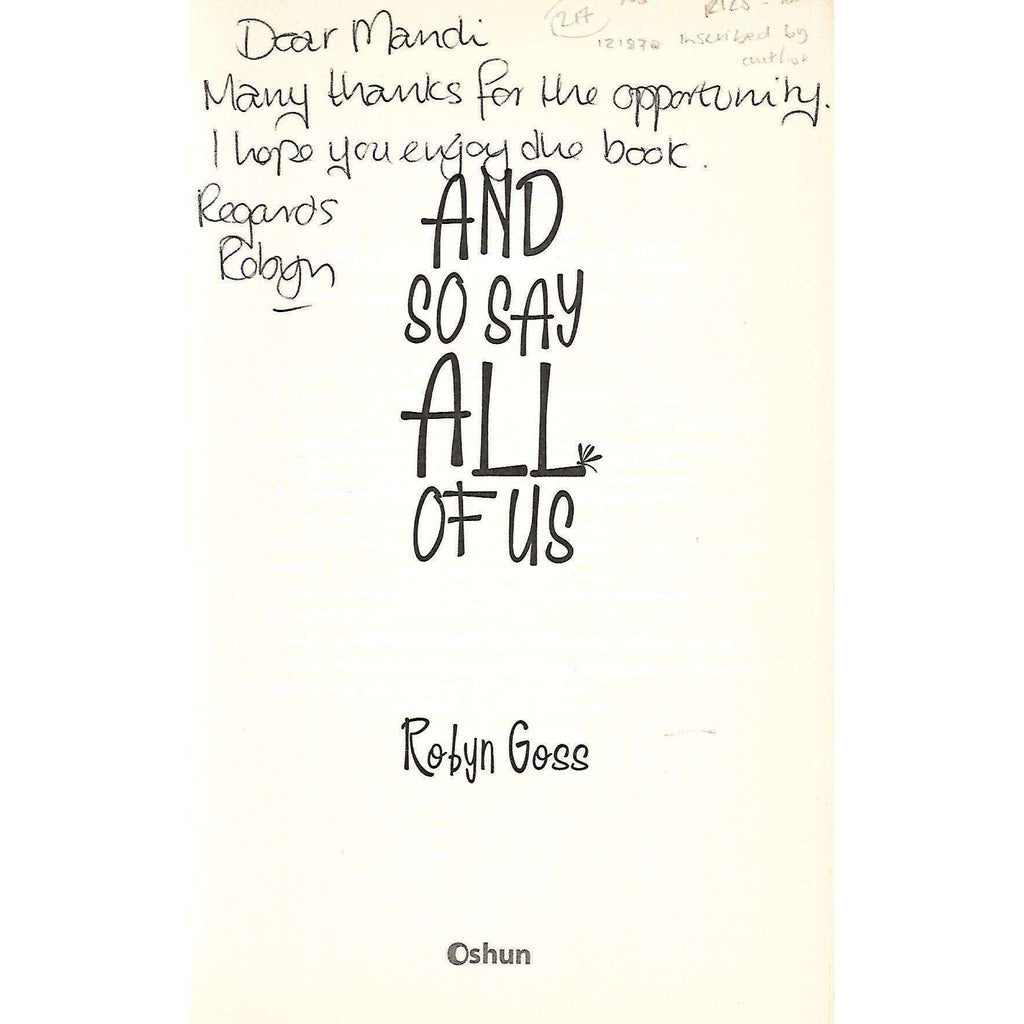 Dear Mandi
Many thanks for the opportunity.
I hope you enjoy the book.
Regards
Robyn
217
R125
121872 inscribed by
author
AND
SO SAY
ALL
OF US
Robyn Goss
Oshun